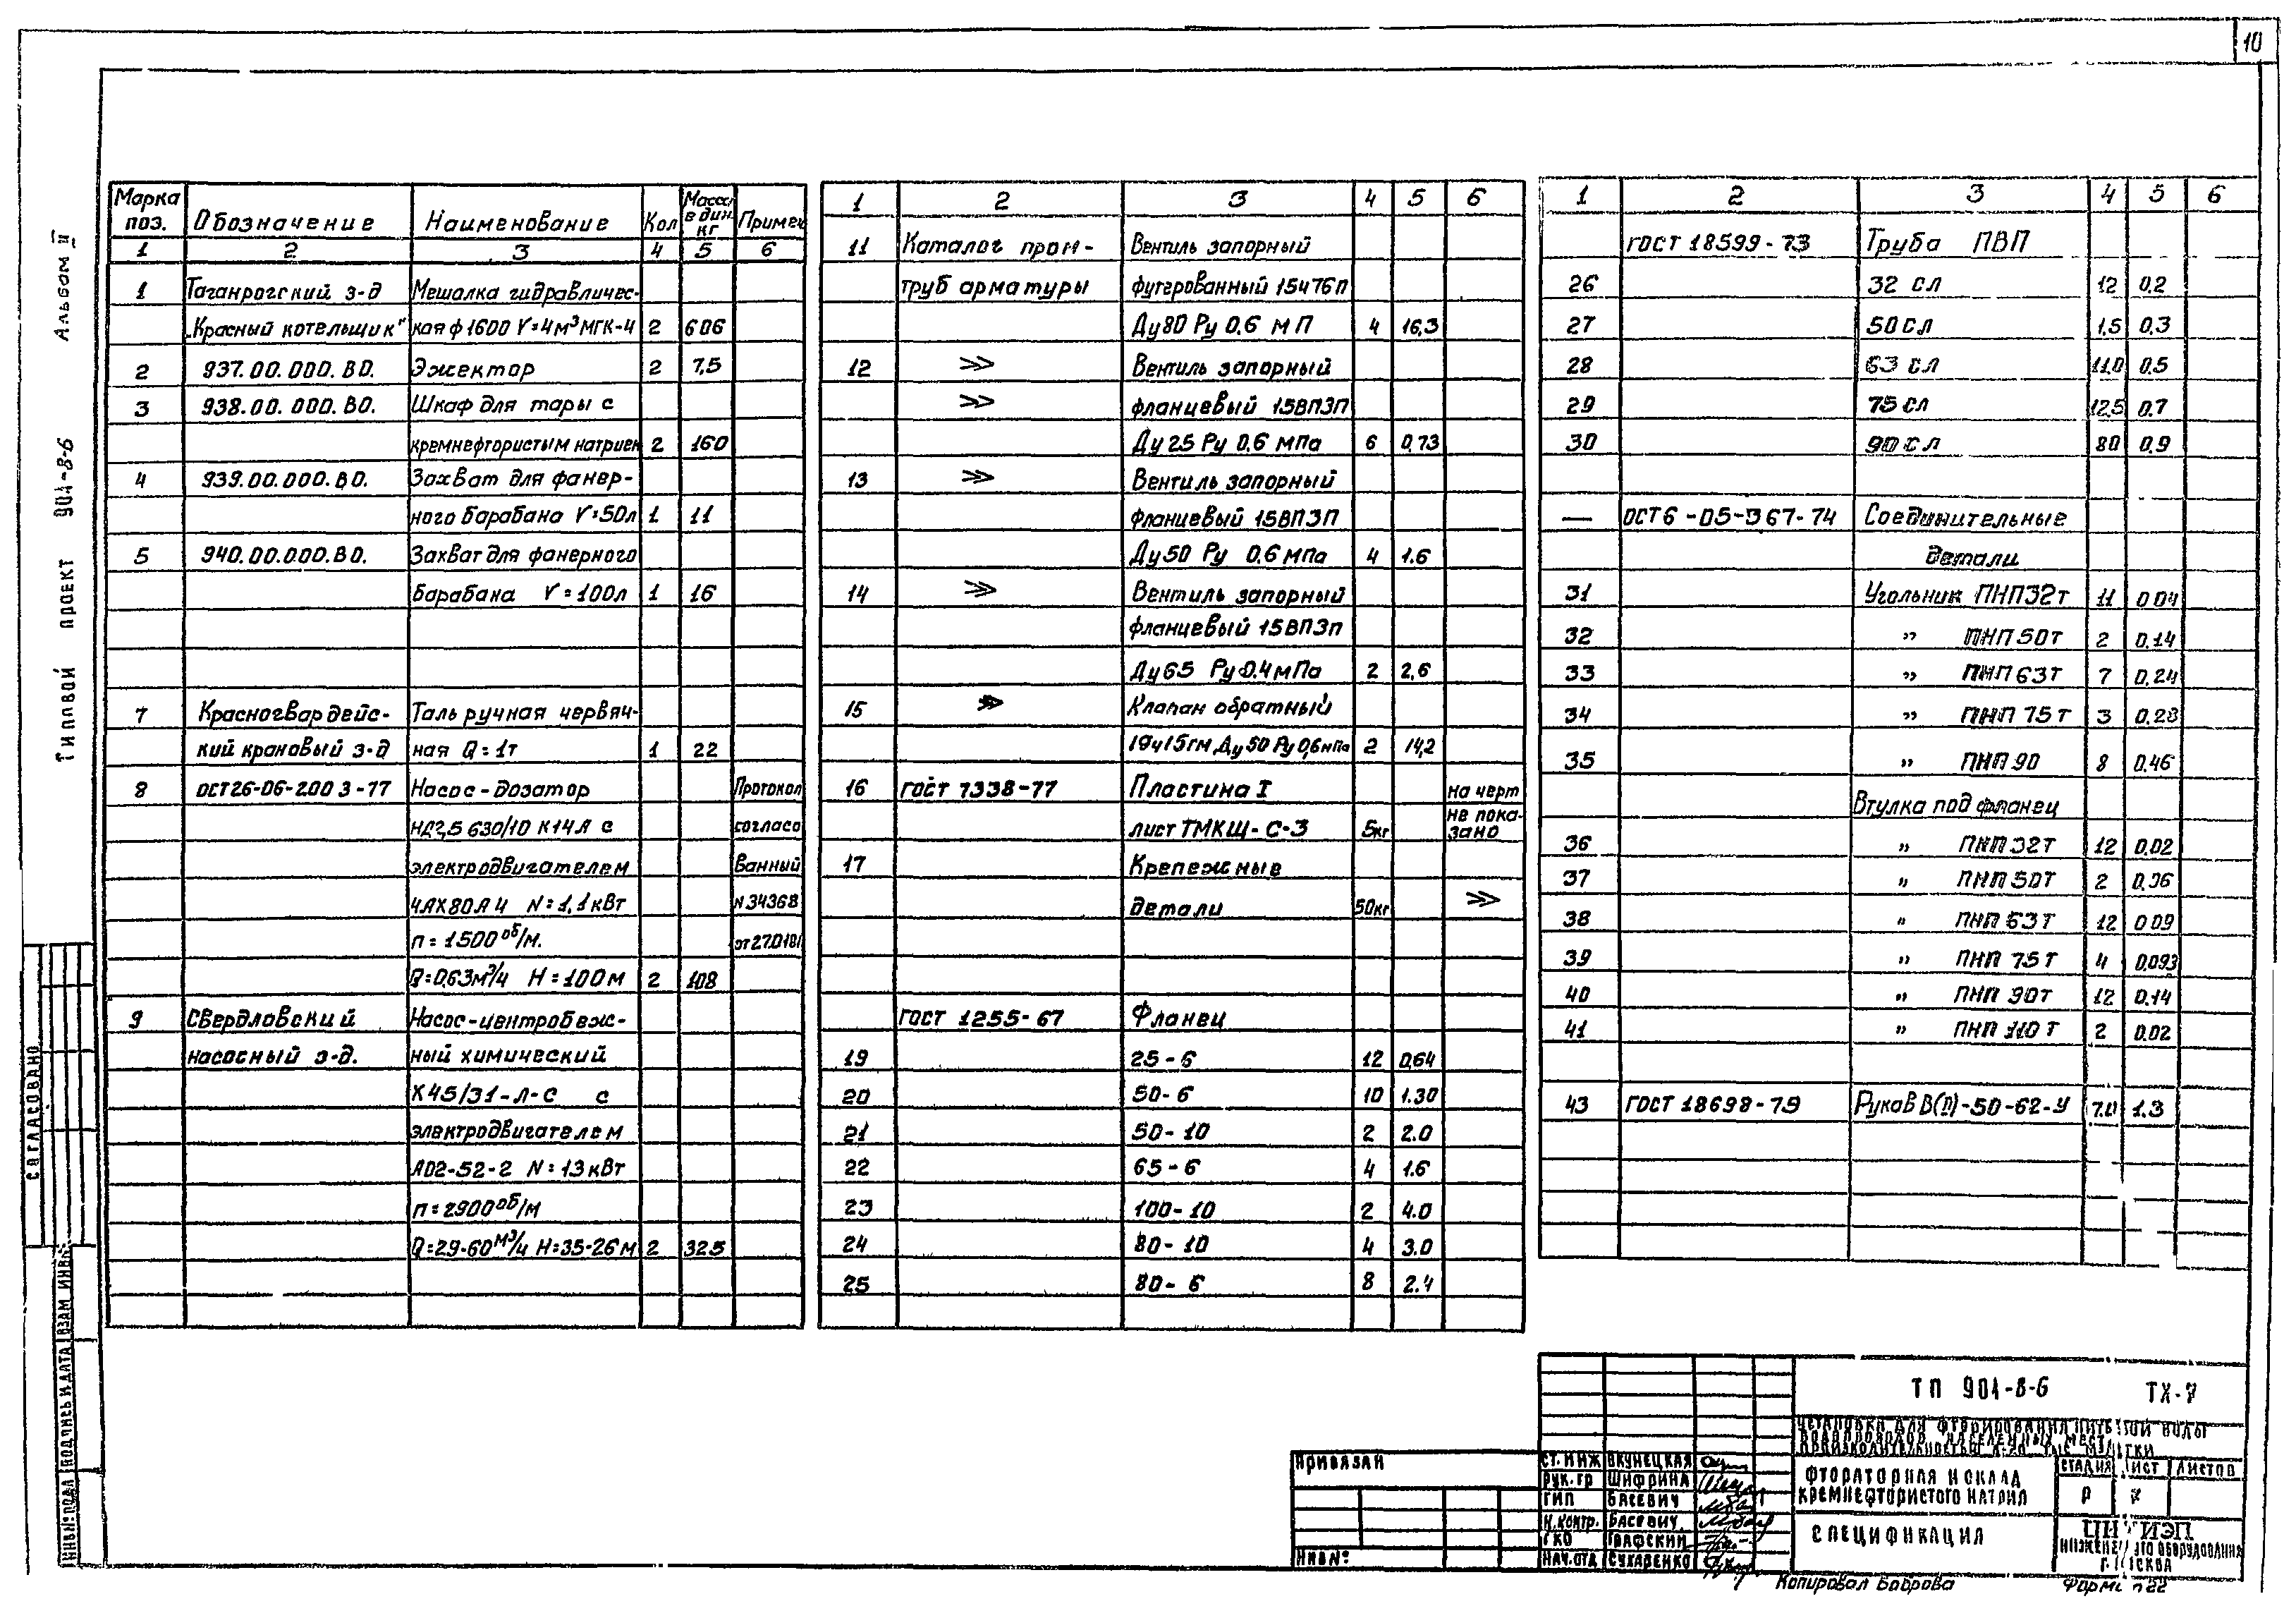 10
Альбом II
Типовой проект 904-8-6
СОГЛАСОВАНО
ИНВ.№ ПОДЛ ПОДПИСЬ И ДАТА ВЗАМ ИНВ.
Марка поз. Обозначение Наименование Кол Масса един. кг Примеч
1 2 3 4 5 6
1 Таганрогский з-д Мешалка гидравличес-
„Красный котельщик" кая ф 1600 V=4м³ МГК-4 2 606
2 937.00.000.ВО. Эжектор 2 7,5
3 938.00.000.ВО. Шкаф для тары с
кремнефтористым натрием 2 160
4 939.00.000.ВО. Захват для фанер-
ного барабана V=50л 1 11
5 940.00.000.ВО. Захват для фанерного
барабана V=100л 1 16
7 Красногвардейс- Таль ручная червяч-
кий крановый з-д ная Q=1т 1 22
8 ОСТ26-06-2003-77 Насос-дозатор Протокол
НД2,5 630/10 К14А с согласо
электродвигателем ванный
4АХ80А4 N=1,1кВт N34368
п=1500 об/м. от 27.01.81
Q=0,63м³/ч H=100м 2 108
9 Свердловский Насос-центробеж-
насосный з-д. ный химический
Х45/31-Л-С с
электродвигателем
АО2-52-2 N=13кВт
п=2900 об/м
Q=29-60м³/ч H=35-26м 2 325
1 2 3 4 5 6
11 Каталог пром- Вентиль запорный
труб арматуры футерованный 15ч76п
Ду80 Ру 0.6 МП 4 16,3
12 >> Вентиль запорный
>> фланцевый 15ВП3П
Ду25 Ру 0.6 мПа 6 0,73
13 >> Вентиль запорный
фланцевый 15ВП3П
Ду50 Ру 0.6 мПа 4 1.6
14 >> Вентиль запорный
фланцевый 15ВП3п
Ду65 Ру 0.4 мПа 2 2,6
15 >> Клапан обратный
19ч15гм, Ду50 Ру 0,6мПа 2 14,2
16 ГОСТ 7338-77 Пластина I на черт
лист ТМКЩ-С-3 5кг не пока-
зано
17 Крепежные
детали 50кг >>
ГОСТ 1255-67 Фланец
19 25-6 12 0,64
20 50-6 10 1.30
21 50-10 2 2.0
22 65-6 4 1.6
23 100-10 2 4.0
24 80-10 4 3.0
25 80-6 8 2.4
1 2 3 4 5 6
ГОСТ 18599-73 Труба ПВП
26 32 сл 12 0.2
27 50 сл 1,5 0.3
28 63 сл 11,0 0,5
29 75 сл 12,5 0.7
30 90 сл 80 0.9
— ОСТ6-05-367-74 Соединительные
детали
31 Угольник ПНП32т 11 0 04
32 " ПНП 50т 2 0.14
33 " ПНП 63т 7 0.24
34 " ПНП 75т 3 0.28
35 " ПНП 90 8 0.46
Втулка под фланец
36 " ПНП 32т 12 0.02
37 " ПНП 50т 2 0.06
38 " ПНП 63т 12 0 09
39 " ПНП 75т 4 0.093
40 " ПНП 90т 12 0.14
41 " ПНП 110т 2 0.02
43 ГОСТ 18698-79 Рукав В(П)-50-62-У 7.0 1.3
ТП 904-8-6 ТХ-7
УСТАНОВКА ДЛЯ ФТОРИРОВАНИЯ ПИТЬЕВОЙ ВОДЫ
ВОДОПРОВОДОВ НАСЕЛЕННЫХ МЕСТ
ФТОРАТОРНАЯ И СКЛАД
КРЕМНЕФТОРИСТОГО НАТРИЯ
СТАДИЯ ЛИСТ ЛИСТОВ
Р 7
СПЕЦИФИКАЦИЯ
ЦНИИЭП
ИНЖЕНЕРНОГО ОБОРУДОВАНИЯ
Г. МОСКВА
Привязан
Инв №
СТ. ИНЖ
РУК. ГР ШИФРИНА
ГИП БАСЕВИЧ
Н.КОНТР. БАСЕВИЧ
ГКО ГРАФСКИЙ
НАЧ.ОТД СУХАРЕНКО
Копировал Боброва
Формат 22